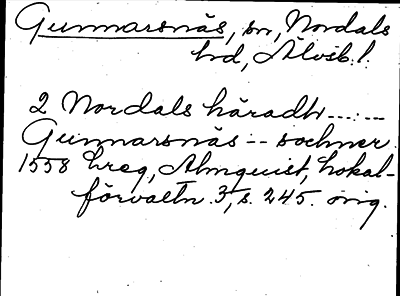 Gunnarsnäs, sn, Nordals
hd, Älvsb. l.
2 Nordals häradh ---:--
Gunnarsnäs -- sochner.
1558 hreg, Almquist, Lokal-
förvaltn. 3, s. 245. orig.